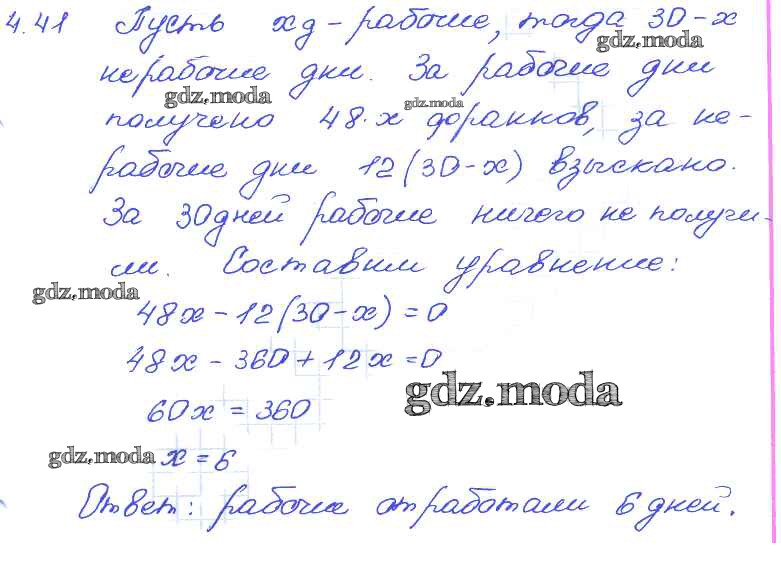 4.41 Пусть х д - рабочие, тогда 30-х
gdz.moda
нерабочие дни. За рабочие дни
gdz.moda gdz.moda
получено 48·х франков, за не-
рабочие дни 12(30-х) взыскано.
За 30 дней рабочие ничего не получи-
ли. Составим уравнение:
gdz.moda
48х-12(30-х)=0
48х-360+12х=0
gdz.moda
60х=360
gdz.moda х=6
Ответ: рабочие отработали 6 дней.